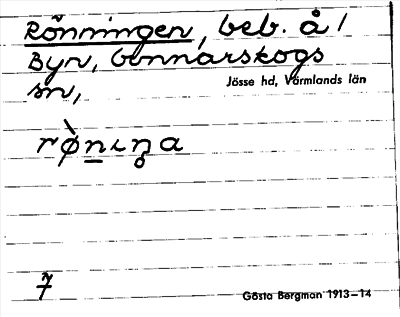 Rönningen, beb. å /
Byn, Gunnarskogs
sn,
Jösse hd, Värmlands län
rø̀nıŋa
7
Gösta Bergman 1913–14